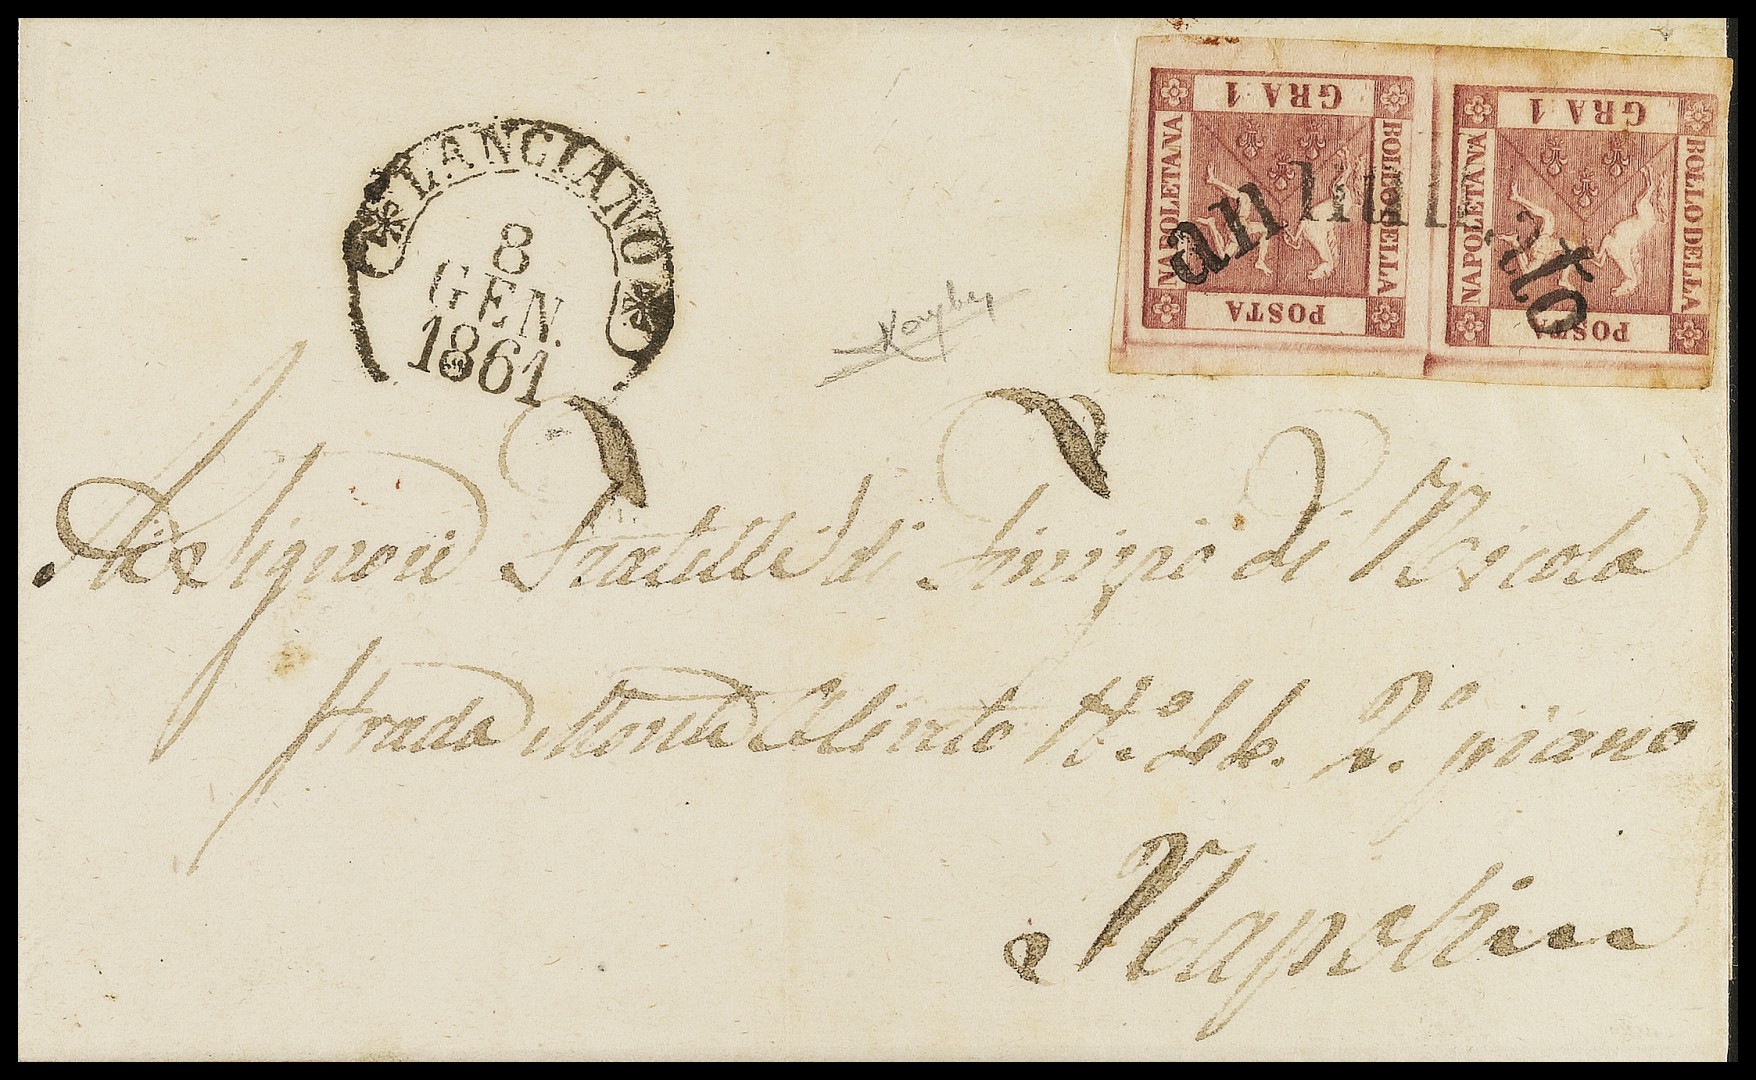 LANCIANO
8
GEN.
1861
GRA 1
BOLLO DELLA
POSTA
NAPOLETANA
GRA 1
BOLLO DELLA
POSTA
NAPOLETANA
annullato
Signori Fratelli di di Nicola
Strada Monte Oliveto N.° 2.° piano
Napoli